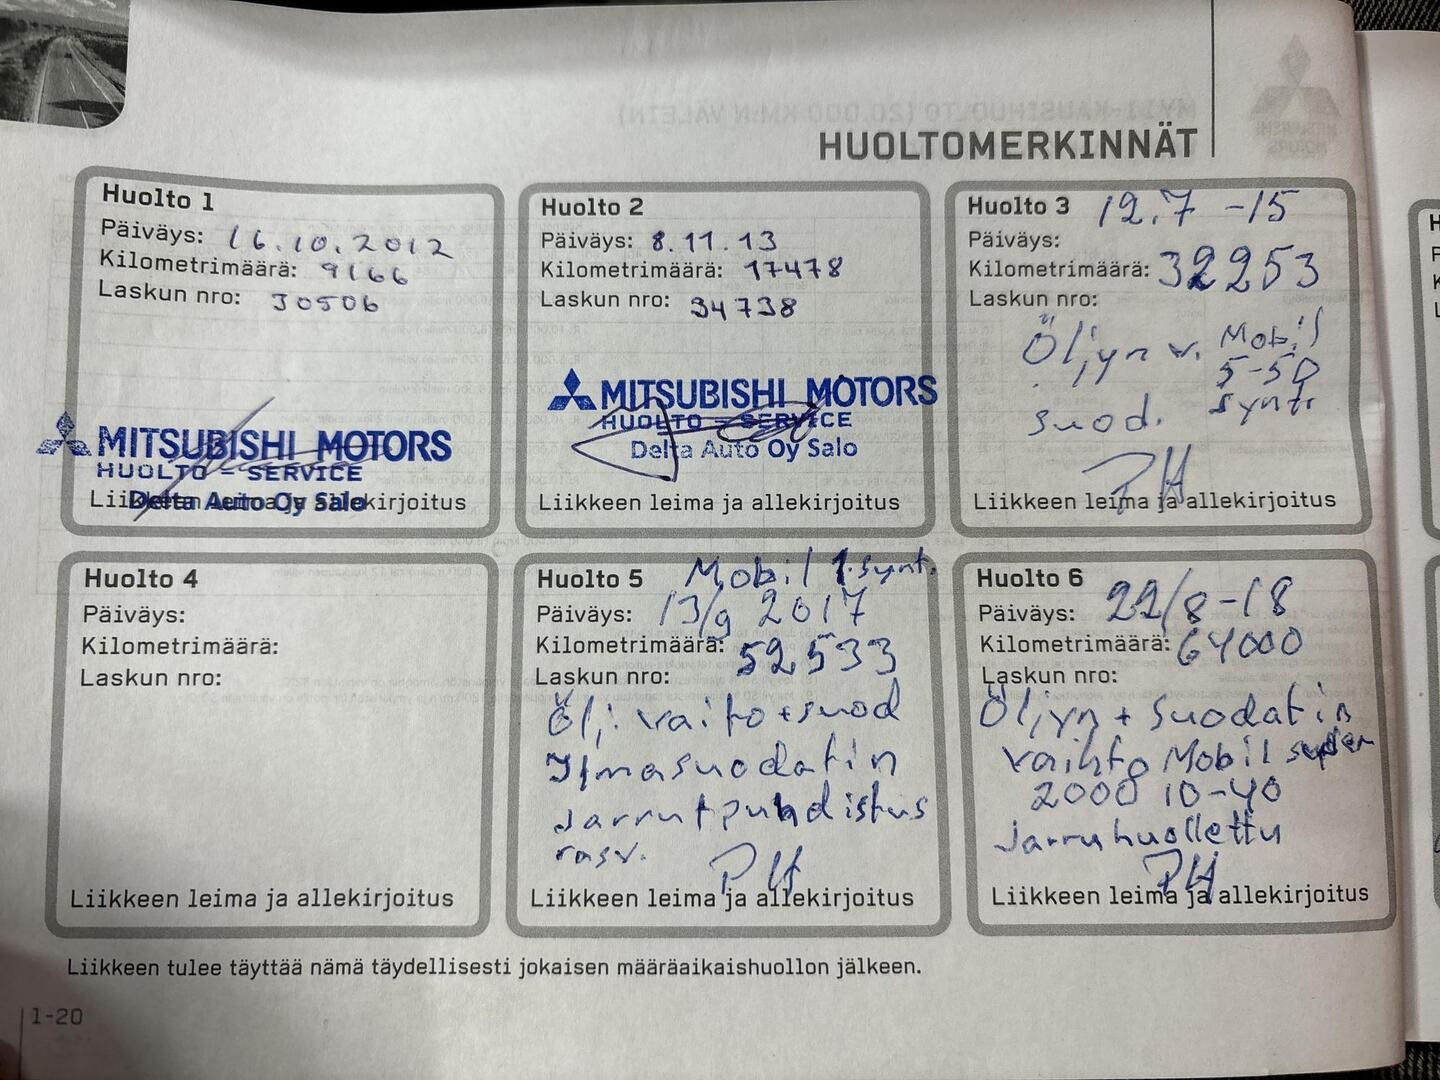 HUOLTOMERKINNÄT
Huolto 1
Päiväys: 16.10.2012
Kilometrimäärä: 9166
Laskun nro: 30506
MITSUBISHI MOTORS
HUOLTO - SERVICE
Delta Auto Oy Salo
Liikkeen leima ja allekirjoitus
Huolto 2
Päiväys: 8.11.13
Kilometrimäärä: 17478
Laskun nro: 34738
MITSUBISHI MOTORS
HUOLTO - SERVICE
Delta Auto Oy Salo
Liikkeen leima ja allekirjoitus
Huolto 3 12.7 -15
Päiväys:
Kilometrimäärä: 32253
Laskun nro:
Öljyn v. Mobil
5-50
suod. synt
PH
Liikkeen leima ja allekirjoitus
Huolto 4
Päiväys:
Kilometrimäärä:
Laskun nro:
Liikkeen leima ja allekirjoitus
Huolto 5 Mobil 1 synt.
Päiväys: 13/9 2017
Kilometrimäärä: 52533
Laskun nro:
Ölj. vaito + suod
Ilmasuodatin
Jarrut puhdistus
rasv.
PH
Liikkeen leima ja allekirjoitus
Huolto 6
Päiväys: 22/8-18
Kilometrimäärä: 64000
Laskun nro:
Öljyn + Suodatin
vaihto Mobil super
2000 10-40
Jarruhuollettu
PH
Liikkeen leima ja allekirjoitus
Liikkeen tulee täyttää nämä täydellisesti jokaisen määräaikaishuollon jälkeen.
1-20